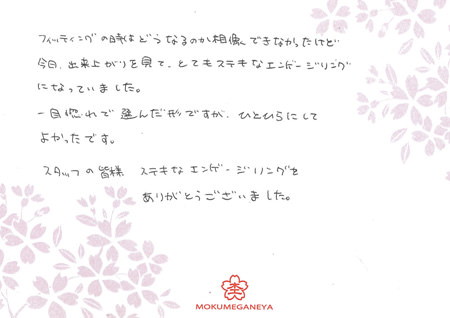 フィッティングの時はどうなるのか想像できなかったけど
今日、出来上がりを見て、とてもステキなエンゲージリング
になっていました。
一目惚れで選んだ形ですが、ひとひらにして
よかったです。
スタッフの皆様 ステキなエンゲージリングを
ありがとうございました。
杢
MOKUMEGANEYA